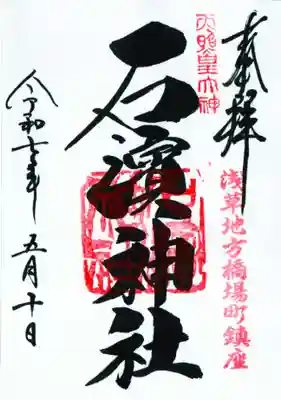 奉拝
浅草地方橋場町鎮座
天照皇大神
石濱神社
令和七年
五月十日